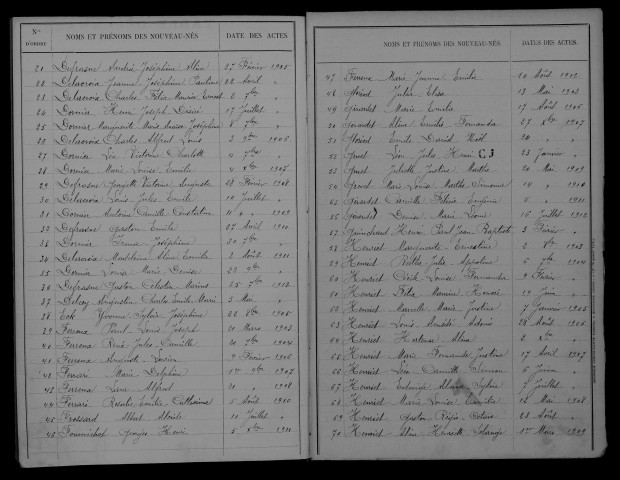 Nos D'ORDRE NOMS ET PRÉNOMS DES NOUVEAU-NÉS DATE DES ACTES
21 Defrasne André Joséphine Alin 27 Février 1905
22 Delacroix Jeanne Joséphine Pauline 22 Avril "
23 Delacroix Charles Félix Maurice Ernest 2 7bre "
24 Dornier Henri Joseph Désiré 17 Juillet "
25 Dornier Marguerite Marie Louise Joséphine 8 7bre "
26 Delacroix Charles Alfred Louis 2 9bre 1906
27 Dornier Léa Victorine Charlotte 4 7bre "
28 Dornier Marie Louise Emilie 4 Xbre 1907
29 Defrasne Georgette Victorine Auguste 28 Février 1908
30 Delacroix Louis Jules Emile 10 Juillet "
31 Dornier Antoine Camille Constantin 11 " 1909
32 Defrasne Gaston Emile 27 Avril 1910
33 Dornier Joséphine 30 7bre "
34 Delacroix Madeleine Alina Emilie 2 Août 1911
35 Dornier Louise Marie Denise 22 9bre "
36 Defrasne Gaston Célestin Marius 25 7bre 1912
37 Delcey Augustin Charles Emile Marie 3 Mai "
38 Eck Yvonne Sylvie Joséphine 22 8bre 1905
39 Ferreux Paul Louis Joseph 20 Mars 1903
40 Ferreux René Jules Camille 20 7bre 1904
41 Ferreux Lucien 9 Février 1906
42 Ferrari Marie Delphine 9bre 1907
43 Ferreux Léon Alfred 20 " 1908
44 Ferrari Rosalie Emilie Catherine 5 Août 1910
45 Frossard Albert Aloïde 10 Juillet "
46 Fournichet Georges Henri 5 Xbre 1911
NOMS ET PRÉNOMS DES NOUVEAU-NÉS. DATES DES ACTES.
47 Ferreux Marie Jeanne Emilie 14 Août 1902
48 Julia Elisa 13 Mai 1903
49 Girardet Marie Emilie 17 Août 1906
50 Girardet Alice Emilie Fernanda 27 Xbre 1907
51 Emile Daniel Noël 26 "
52 Léon Jules Henri 23 Janvier "
53 Juliette Justine Marthe 20 Mai 1909
54 Girard Marie Louise Marthe Simonne 14 " 1910
55 Girardet Camille Félicie Eugénie 5 " 1911
56 Girardet Denise Marie Léonie 16 Juillet 1912
57 Guinchard Henri Paul Jean Baptiste 3 Février "
58 Henriet Marguerite Ernestine 2 8bre 1903
59 Henriet Berthe Julie Appoline 5 7bre 1904
60 Henriet Cécile Louise Fernande 9 Février "
61 Henriet Félix Maurice Honoré 19 Juin "
62 Henriet Marcelle Marie Justine 7 Janvier 1905
63 Henriet Louis Amédée Adonis 28 Août 1906
64 Henriet Hortense Alina 2 Xbre "
65 Henriet Marie Fernande Justine 17 Avril 1907
66 Henriet Léon Camille 6 Juin "
67 Henriet Sylvie 7 Juillet "
68 Henriet Marie Louise Emilie 12 Mai 1908
69 Henriet Gaston Régis Octave 23 Août "
70 Henriet Aline Henriette Solange 1er Mars 1909